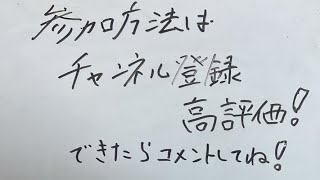 参加方法は
チャンネル登録
高評価!
できたらコメントしてね!